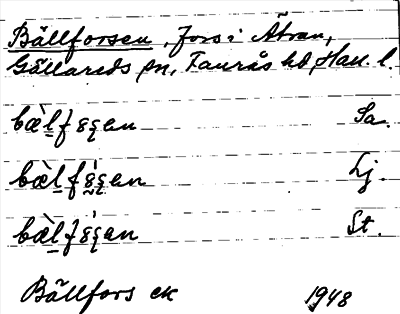 Bällforsen, fors i Ätran,
Gällareds sn, Faurås hd, Hall. l.
bæ̀l̲fꞩʂen Sa.
bæ̀l̲fꞩ̀ʂen Lj.
bæ̀l̲fꞩ̀ʂen St.
Bällfors ek 1948